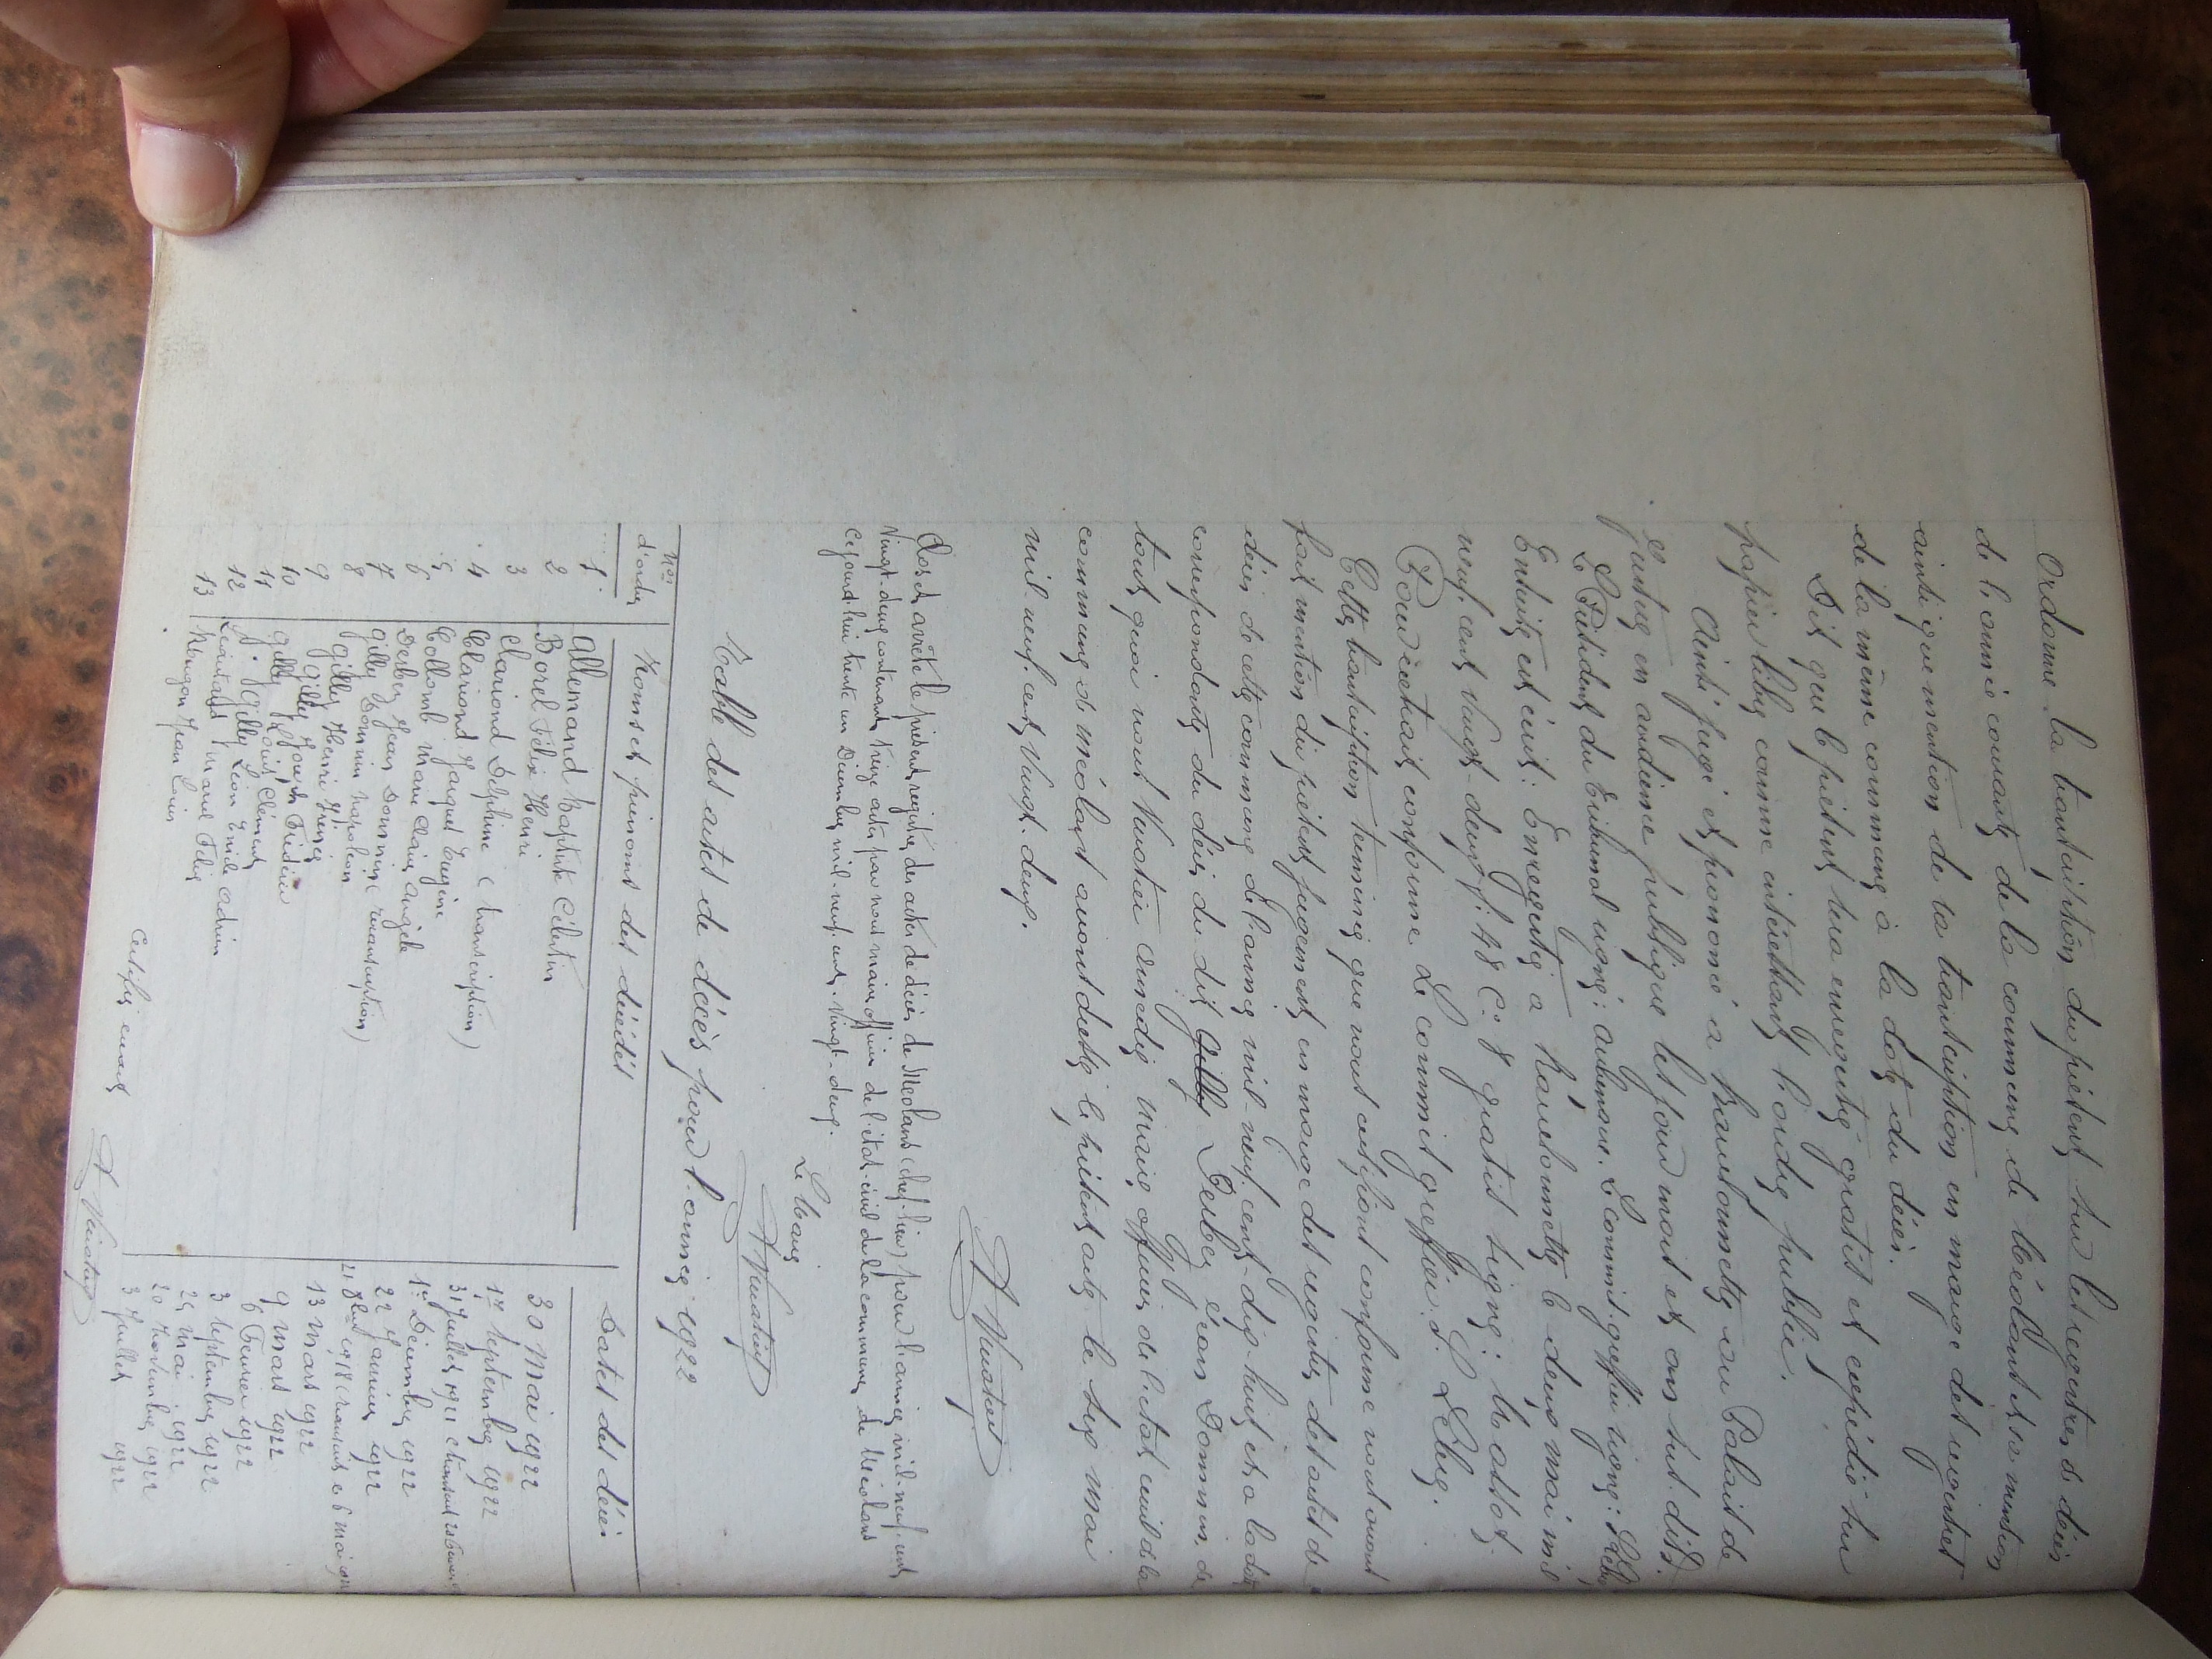 Ordonne la transcription du présent sur les registres de décès
de l'année courante de la commune de Méolans et sa mention
ainsi que mention de sa transcription en marge des registres
de la même commune à la date du décès.
Dit que le présent sera enregistré gratis et expédié sur
papier libre comme intéressant l'ordre public.
Ainsi jugé et prononcé à Barcelonnette au Palais de
Justice en audience publique les jour mois et an sus dits.
Le Président du Tribunal signé: Le commis greffier signé:
Ensuite est écrit: Enregistré à Barcelonnette le deux mai mil
neuf cent vingt-deux f: 48 C: 8 gratis signé:
Pour extrait conforme Le commis greffier
Cette transcription terminée que nous certifions conforme nous avons
fait mention du présent jugement en marge des registres des actes de
décès de cette commune de l'année mil-neuf cent dix-huit et à la date
correspondante du décès du dit Gilly Derbez Jean Donnin, de
tout quoi nous maire officier de l'état civil de la
commune de Méolans avons dressé le présent acte le six mai
mil neuf cent vingt-deux.
Clos et arrêté le présent registre des actes de décès de Méolans (chef-lieu) pour l'année mil-neuf-cent
vingt-deux contenant treize actes par nous maire officier de l'état-civil de la commune de Méolans
ce jourd'hui trente un Décembre mil-neuf-cent-vingt-deux.
Le Maire
Table des actes de décès pour l'année 1922
Nos d'ordre Noms et prénoms des décédés Dates des décès
1 Allemand Baptiste Célestin 30 Mai 1922
2 Borel Félix Henri 1er Septembre 1922
3 Clariond Delphine (transcription) 31 Juillet 1921
4 Clariond Jacques Eugène 1er Décembre 1922
5 Collomb Marie Claire Angèle 22 Janvier 1922
6 Derbez Jean Donnin (transcription) 21 1918
7 Gilly Donnin Napoléon 13 Mars 1922
8 Gilly Henri 9 Mars 1922
9 Gilly Joseph Frédéric 6 Février 1922
10 Gilly Louis Clément 3 Septembre 1922
11 Gilly Léon Emile Adrien 29 Mai 1922
12 Marie Félix 20 Novembre 1922
13 Jean Louis 3 Juillet 1922
Certifié exact